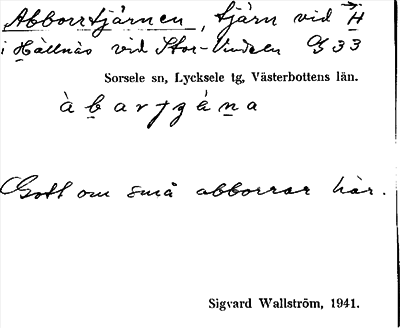 Abborrtjärnen, tjärn vid H
i Hällnäs vid Stor-Vindeln G 33
Sorsele sn, Lycksele tg, Västerbottens län.
à b a r ƒ g é n a
Gott om små abborrar här.
Sigvard Wallström, 1941.